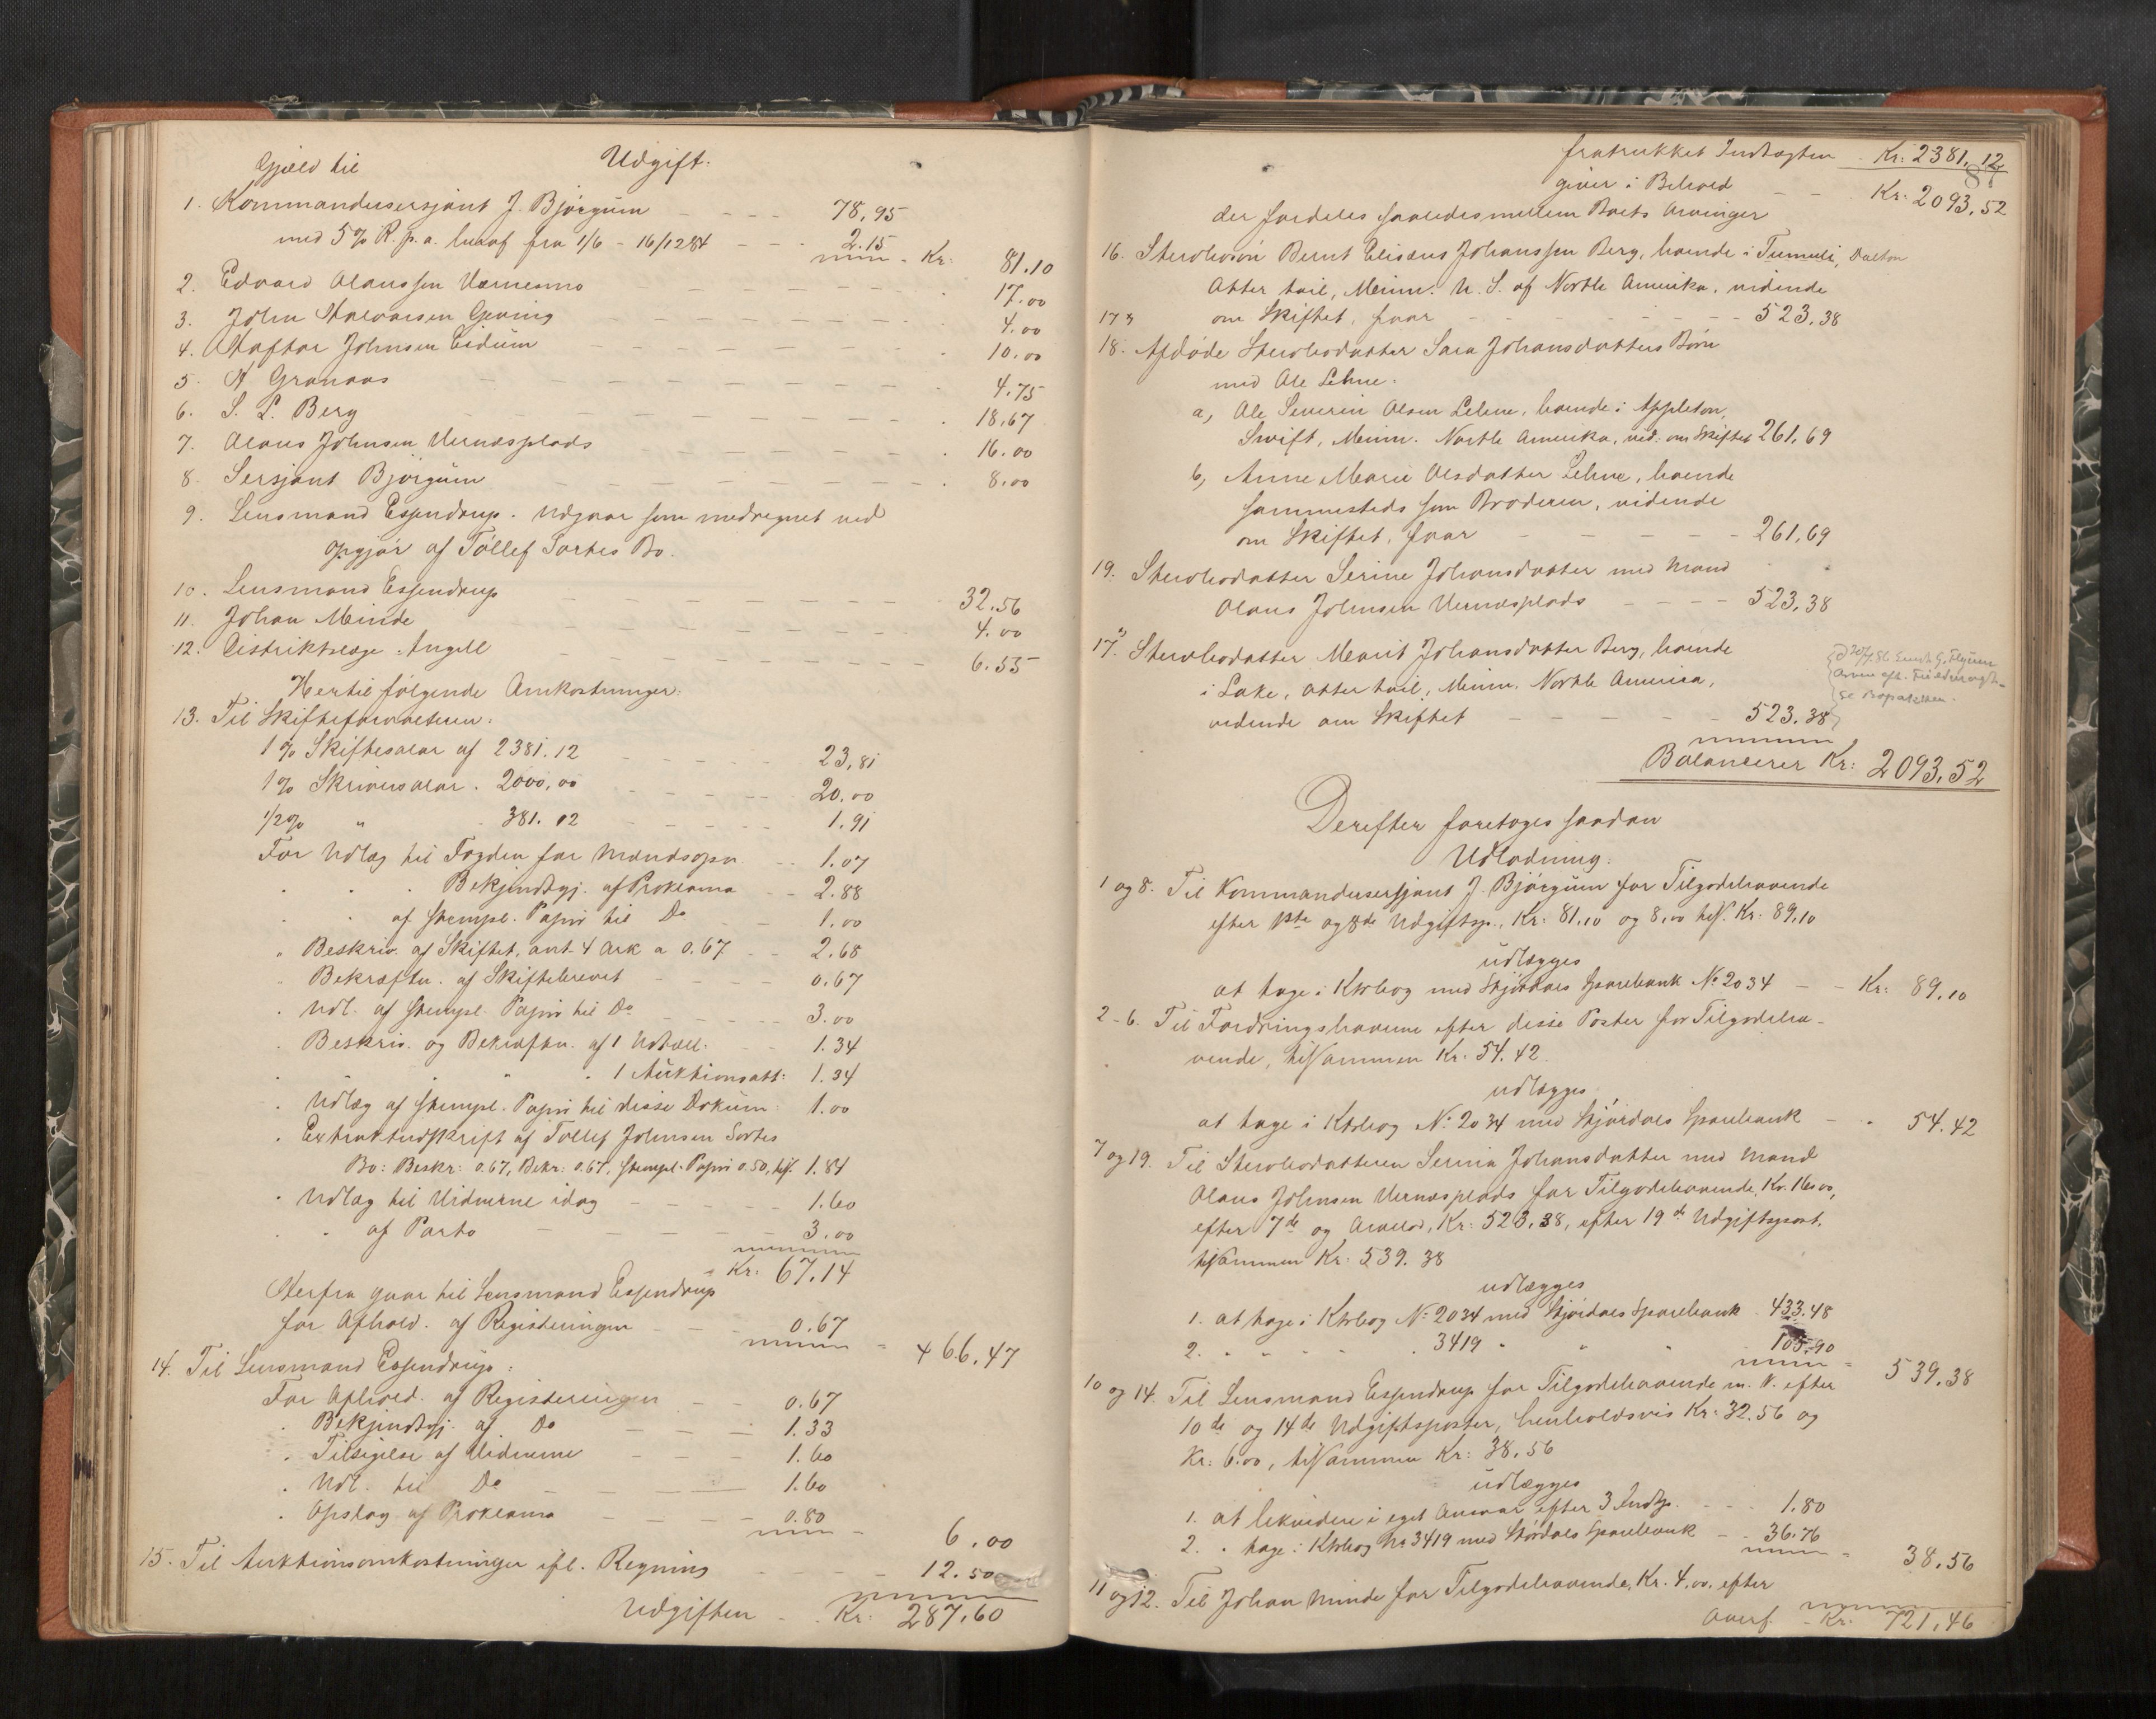 Udgift.
Gjæld til
1. Kommandersersjant J. Bjørgum - - - - 78,95
med 5% R. p. a. heraf fra 1/6 - 16/12 84 - - - 2.15 Kr: 81.10
2. Edvard Olaussen Værnesmo - - - 17.00
3. John Halvorsen Geving - - - 4.00
4. Haftor Johnsen Eidum - - - 10.00
5. N Granaas - - - 4.75
6. S. L. Berg - - - 18,67
7. Olaus Johnsen Vernesplads - - - 16.00
8. Sersjant Bjørgum - - - 8.00
9. Lensmand Essendrup. Udgaar som medregnet ved
opgjør af Tollef Sortes Bo.
10. Lensmand Essendrup - - - 32.56
11. Johan Minde - - - 4.00
12. Distriktslæge Angell - - - 6.55
Hertil følgende Omkostninger:
13. Til Skifteforvalteren:
1% Skiftesalar af 2381.12 - - - 23,81
1% Skriversalar. 2000,00 - - - 20.00
1/2% " - 381.12 - - - 1.91
For Udlæg til Fogden for Mandsopn. - - 1.07
" " Bekjendtgj. af Proklama - - 2.88
" " af stempl. Papir til Do - - 1.00
" Beskriv. af Skiftet, ant. 4 Ark a 0.67 - - 2.68
" Bekræftn. af Skiftebrevet - - - 0.67
" Udl. af stempl. Papir til Do - - - 3.00
" Beskriv. og Bekræftn. af 1 Udtæll: - - 1.34
" " " " 1 Auktionsatt: 1.34
" Udlæg af stempl. Papir til disse Dokum: 1.00
" Extraktudskrift af Tollef Johnsen Sortes
Bo: Beskr: 0.67, Bekr: 0.67, stempl. Papir 0.50, tils. 1.84
" Udlæg til Vidnerne idag - - - 1.60
" " af Porto - - - 3.00
Kr: 67.14
Herfra gaar til Lensmand Essendrup
for Afhold. af Registeringen - - 0.67 66.47
14. Til Lensmand Essendrup:
For Afhold. af Registeringen - - 0.67
" Bekjendtgj. af Do - - - 1.33
" Tilsigelse af Vidnerne - - - 1.60
" Udl. til Do - - - 1.60
" Opslag af Proklama - - - 0.80 6.00
15. Til Auktionsomkostninger ifl. Regning - - - 12.50
Udgiften - - Kr: 287.60
87
fratrukket Indtægten - Kr: 2381,12
giver i Behold - - Kr: 2093,52
der fordeles saaledes mellem Boets Arvinger
16. Sterbosøn Bernt Elisæus Johanssen Berg, boende i Tumuli, Dalton
Otter tail, Minn. U. S. of North Amerika, vidende
om Skiftet, faar - - - 523,38
17)
18. Afdøde Sterbodatter Sara Johansdatters Børn
med Ole Lehne:
a, Ole Severin Olsen Lehne, boende i Appleton,
Swift, Minn. North Amerika, vid: om Skiftet 261,69
b, Anne Marie Olsdatter Lehne, boende
sammesteds som Broderen, vidende
om Skiftet, faar - - - 261,69
19. Sterbodatter Serine Johansdatter med Mand
Olaus Johnsen Vernesplads - - - 523,38
17) Sterbodatter Marit Johansdatter Berg, boende
i Lake, Otter tail, Minn. North America,
vidende om Skiftet - - - 523.38
Balancerer Kr: 2093,52
Derefter foretoges saadan
Udlodning:
1 og 8. Til Kommandersersjant J. Bjørgum for Tilgodehavende
efter 1ste og 8de Udgiftsp., Kr: 81,10 og 8,00 tils. Kr: 89,10
udlægges
at tage i Ktrbog med Stjørdals Sparebank No 2034 - - Kr: 89,10
2-6. Til Fordringshaverne efter disse Poster for Tilgodeha-
vende, tilsammen Kr: 54.42
udlægges
at tage i Ktrbog No 2034 med Stjørdals Sparebank - - 54.42
7 og 19. Til Sterbodatteren Serina Johansdatter med Mand
Olaus Johnsen Vernesplads for Tilgodehavende, Kr. 16.00,
efter 7de og Arvelod, Kr: 523,38, efter 19de Udgiftspost,
tilsammen Kr: 539.38
udlægges
1. at tage i Ktrbog No 2034 med Stjørdals Sparebank - 433.48
2. " " " " 3419 " " " 105.90 539,38
10 og 14. Til Lensmand Essendrup for Tilgodehavende m. V. efter
10de og 14de Udgiftsposter, henholdsvis Kr: 32.56 og
Kr: 6.00, tilsammen Kr: 38,56
udlægges
1. at likvidere i eget Ansvar efter 3 Indtp. - - - 1.80
2. " tage i Ktrbog No 3419 med Stjørdals Sparebank - - 36.76 38.56
11 og 12. Til Johan Minde for Tilgodehavende, Kr. 4,00, efter
Overf. - Kr: 721,46